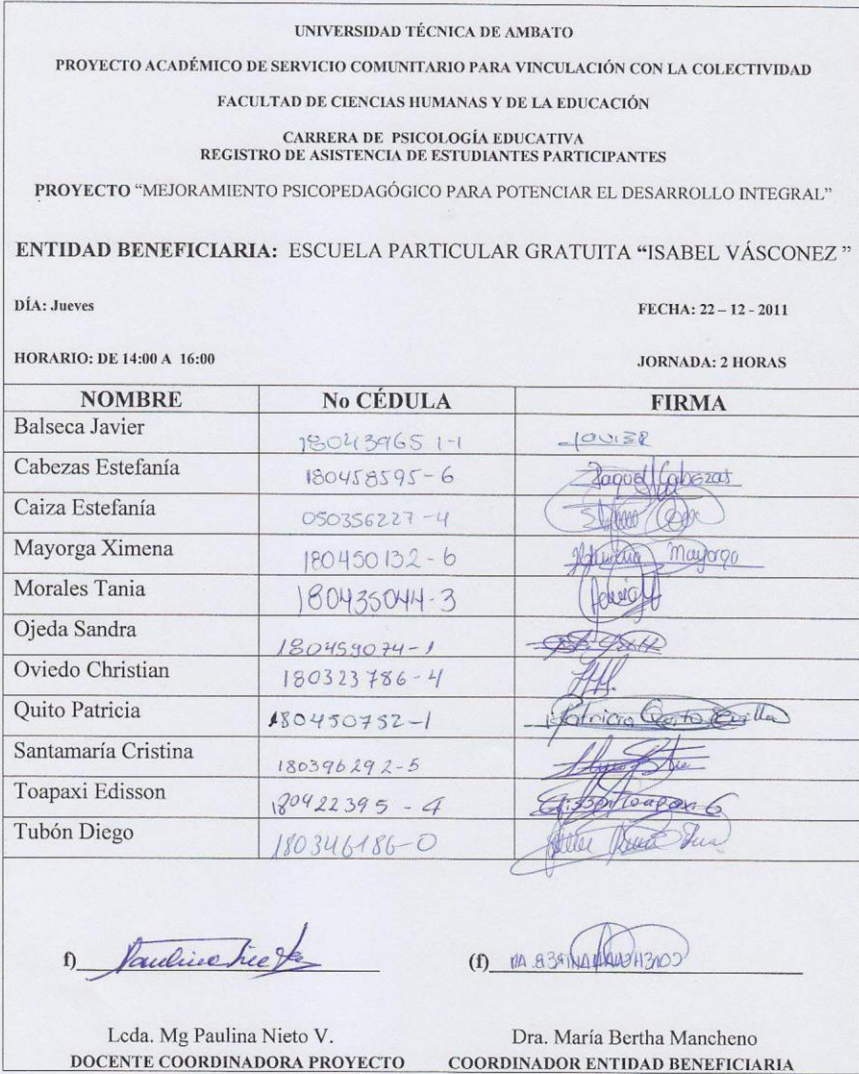 UNIVERSIDAD TÉCNICA DE AMBATO
PROYECTO ACADÉMICO DE SERVICIO COMUNITARIO PARA VINCULACIÓN CON LA COLECTIVIDAD
FACULTAD DE CIENCIAS HUMANAS Y DE LA EDUCACIÓN
CARRERA DE PSICOLOGÍA EDUCATIVA
REGISTRO DE ASISTENCIA DE ESTUDIANTES PARTICIPANTES
PROYECTO “MEJORAMIENTO PSICOPEDAGÓGICO PARA POTENCIAR EL DESARROLLO INTEGRAL”
ENTIDAD BENEFICIARIA: ESCUELA PARTICULAR GRATUITA “ISABEL VÁSCONEZ ”
DÍA: Jueves FECHA: 22 – 12 - 2011
HORARIO: DE 14:00 A 16:00 JORNADA: 2 HORAS
NOMBRE No CÉDULA FIRMA
Balseca Javier 18043965 1-1 JAVIER
Cabezas Estefanía 180458595-6 Raquel Cabezas
Caiza Estefanía 050356227-4
Mayorga Ximena 180450132-6 Mayorga
Morales Tania 180435044-3
Ojeda Sandra 180459074-1
Oviedo Christian 180323786-4
Quito Patricia 180450752-1 Patricia Quito
Santamaría Cristina 180396292-5
Toapaxi Edisson 180422395-4 Edisson Toapaxi G
Tubón Diego 180346186-0
f) (f)
Lcda. Mg Paulina Nieto V. Dra. María Bertha Mancheno
DOCENTE COORDINADORA PROYECTO COORDINADOR ENTIDAD BENEFICIARIA